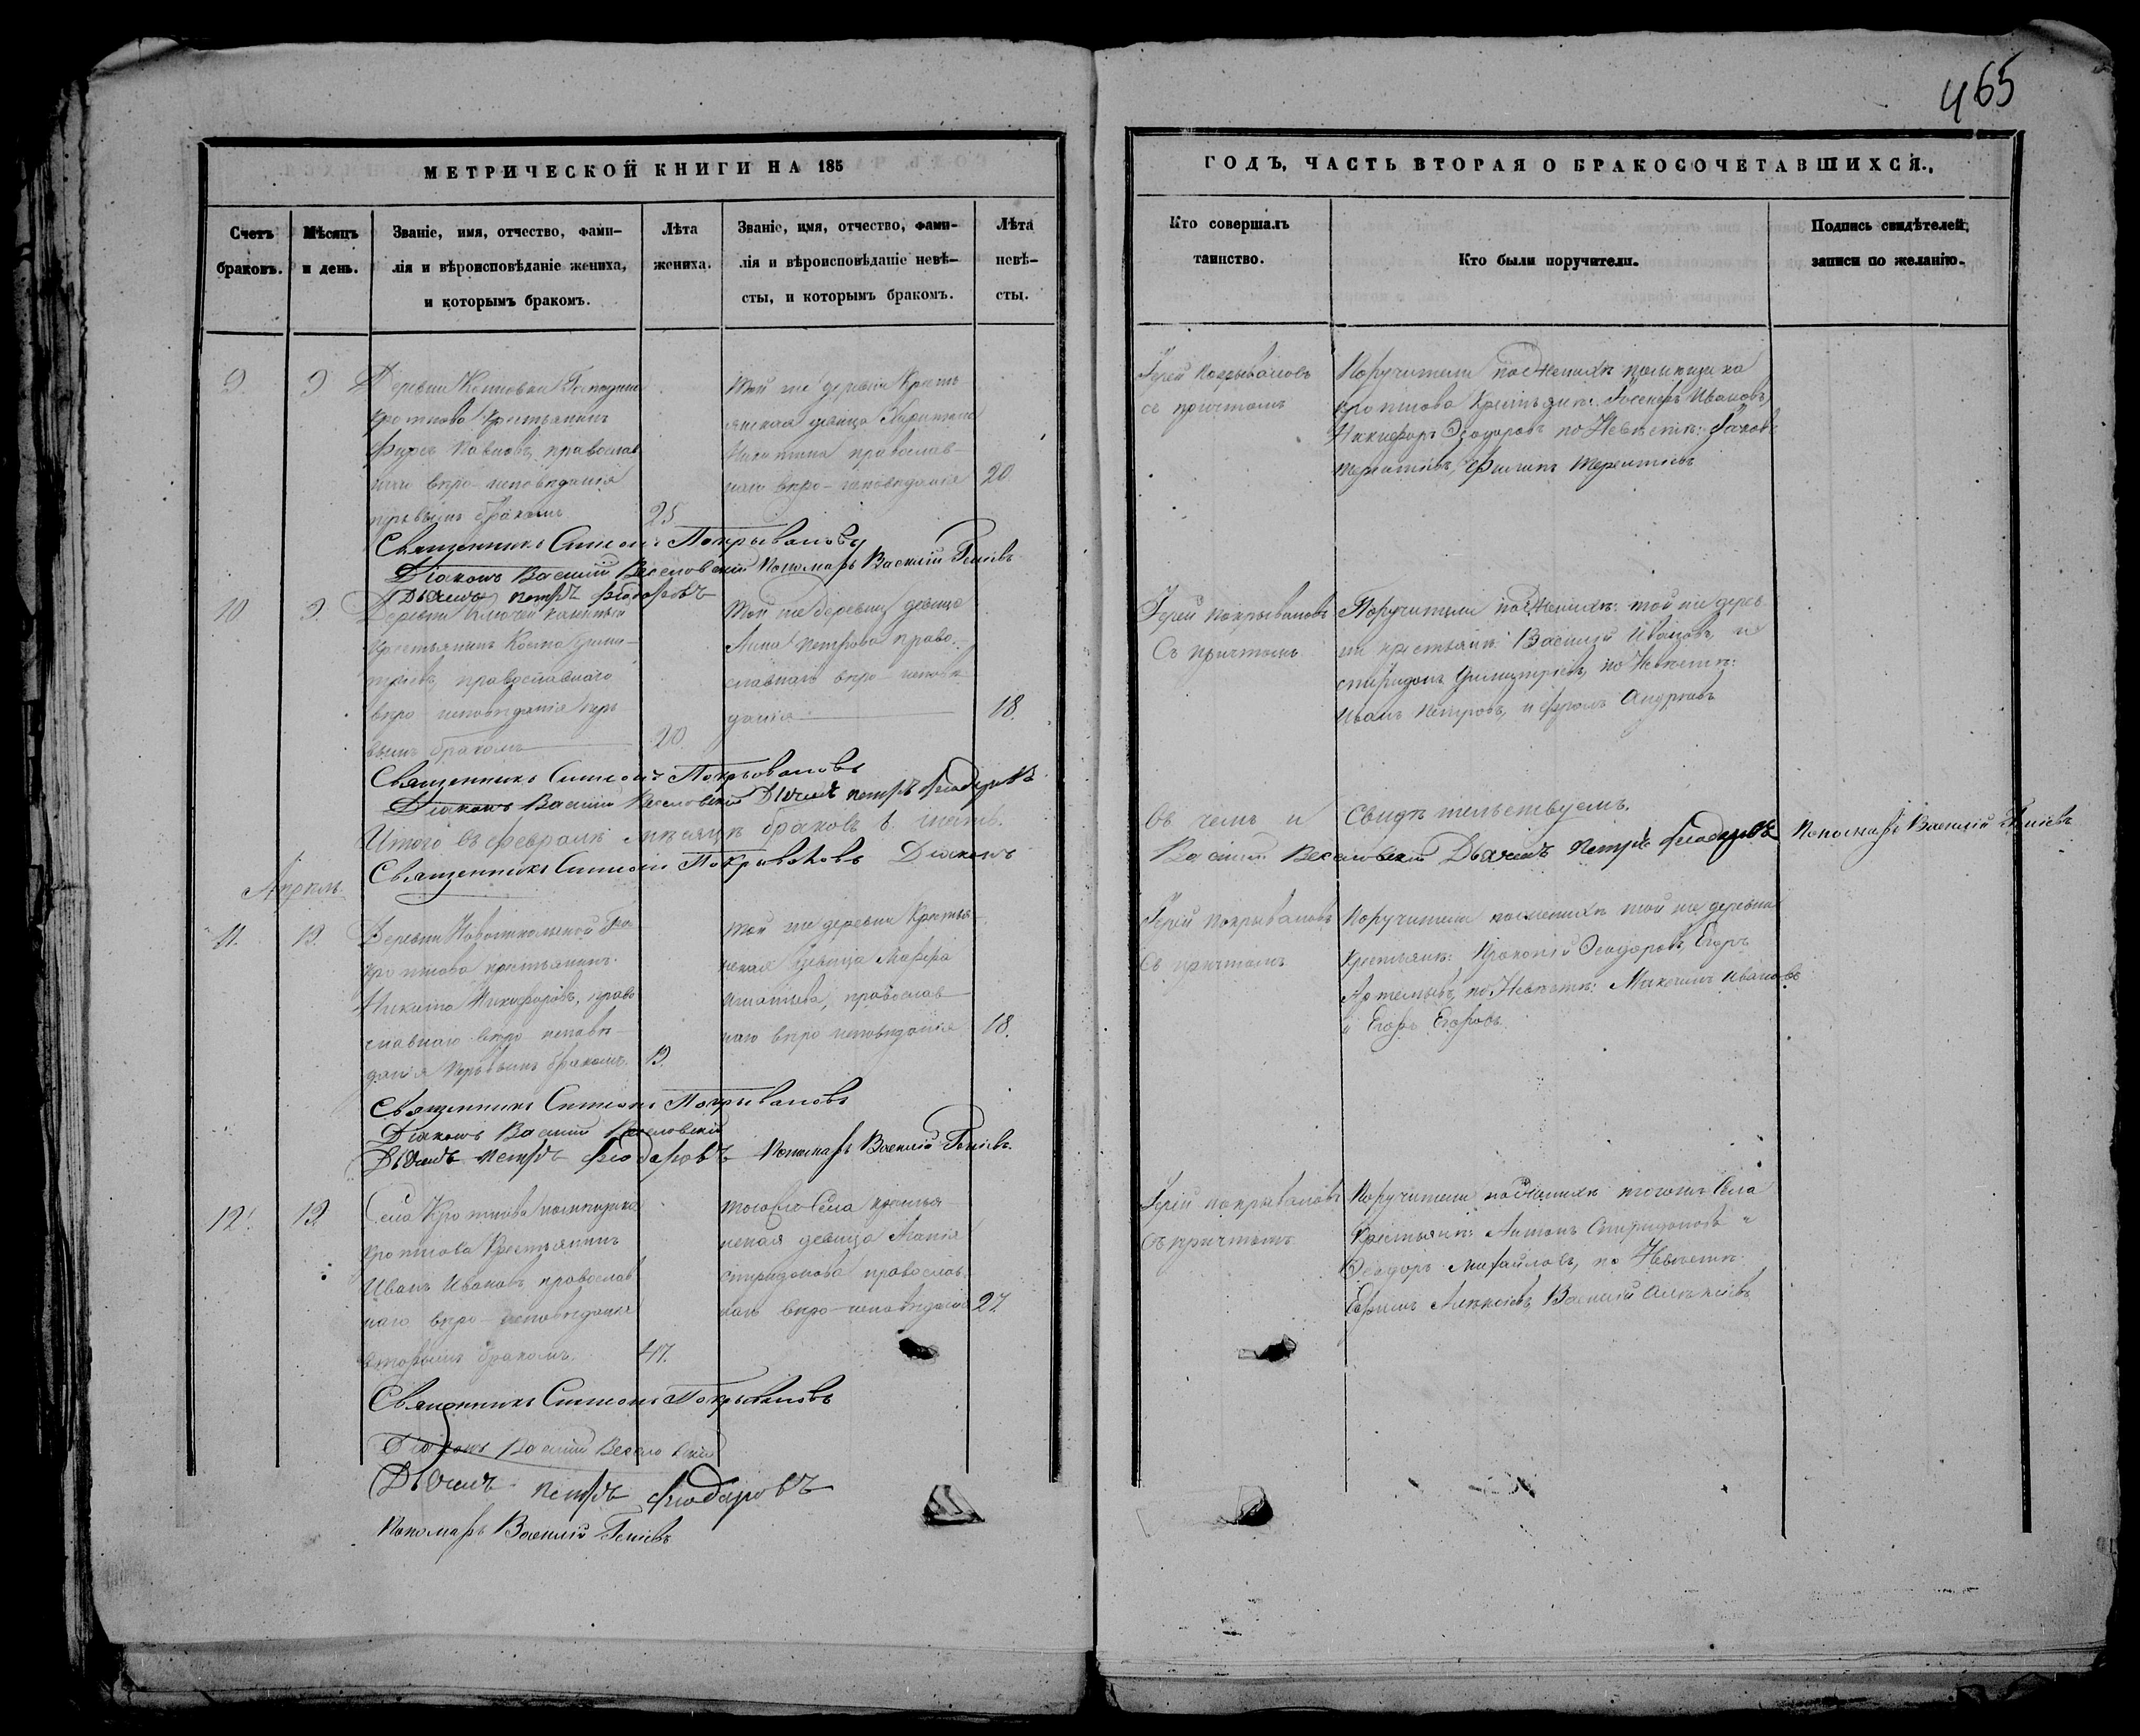 465
МЕТРИЧЕСКОЙ КНИГИ НА 185
ГОДЪ, ЧАСТЬ ВТОРАЯ О БРАКОСОЧЕТАВШИХСЯ.
Счетъ браковъ.
Мѣсяцъ и день.
Званіе, имя, отчество, фами-
лія и вѣроисповѣданіе жениха,
и которымъ бракомъ.
Лѣта
жениха.
Званіе, имя, отчество, фами-
лія и вѣроисповѣданіе невѣ-
сты, и которымъ бракомъ.
Лѣта
невѣ-
сты.
Кто совершалъ
таинство.
Кто были поручители.
Подпись свидѣтелей
записи по желанію.
9. 9
Деревни
крестьянинъ
Павловъ, православ
наго вѣро-исповѣданія
первымъ бракомъ
25
Той же деревни кресть
янская девица
православ-
наго вѣро-исповѣданія
20.
Іерей Покрываловъ
съ причтомъ
Поручители по женихѣ помещика
Кроткова крестьяне: Ивановъ,
Никифоръ Ѳеодоровъ по Невѣстѣ: Яковъ
Терентьевъ, Филипъ Терентьевъ
Священникъ Симеонъ Покрываловъ
Діаконъ Василій Веселовскій Пономарь Василій
Дьячекъ Петръ Феодоровъ
10 9.
Деревни
крестьянинъ Косма Дими-
тріевъ, православнаго
вѣро-исповѣданія пер
вымъ бракомъ
20
Той же деревни девица
Анна Петрова право-
славнаго вѣро-исповѣ
данія
18.
Іерей Покрываловъ
Съ причтомъ
Поручители по женихѣ: той же дерев
ни крестьяне: Василій Ивановъ, и
Спиридонъ Димитріевъ, по Невѣстѣ:
Иванъ Петровъ, и Андреевъ
Священникъ Симеонъ Покрываловъ
Діаконъ Василій Веселовскій Дьячекъ Петръ Феодоровъ
Итого въ феврале мѣсяцѣ браковъ
въ чемъ и свидѣтельствуемъ.
Священникъ Симеонъ Покрываловъ Діаконъ
Василій Веселовскій Дьячекъ Петръ Феодоровъ Пономарь Василій
Апрель
11. 19.
Деревни
Кроткова крестьянинъ
Никита Никифоровъ, право
славнаго вѣро исповѣ-
данія первымъ бракомъ.
19.
Той же деревни кресть
янская девица Марфа
Игнатьева, православ
наго вѣро исповѣданія
18.
Іерей Покрываловъ
Съ причтомъ
Поручители по женихѣ той же деревни
крестьяне: Прокопій Ѳеодоровъ, Егоръ
Артемьевъ, по Невѣстѣ: Ивановъ
и Егоръ Егоровъ.
Священникъ Симеонъ Покрываловъ
Діаконъ Василій Веселовскій
Дьячекъ Петръ Феодоровъ Пономарь Василій
12. 19.
Села Кроткова помещика
Кроткова крестьянинъ
Иванъ Ивановъ, православ
наго вѣро-исповѣданія
вторымъ бракомъ.
47.
Того же Села крестья
нская девица
Спиридонова православ
наго вѣро-исповѣданія
27
Іерей Покрываловъ
Съ причтомъ
Поручители по женихѣ того же Села
Крестьяне: Антонъ Спиридоновъ и
Ѳеодоръ Михайловъ, по Невѣстѣ
Ефимъ Алексѣевъ, Василій Алексѣевъ
Священникъ Симеонъ Покрываловъ
Діаконъ Василій Веселовскій
Дьячекъ Петръ Феодоровъ
Пономарь Василій